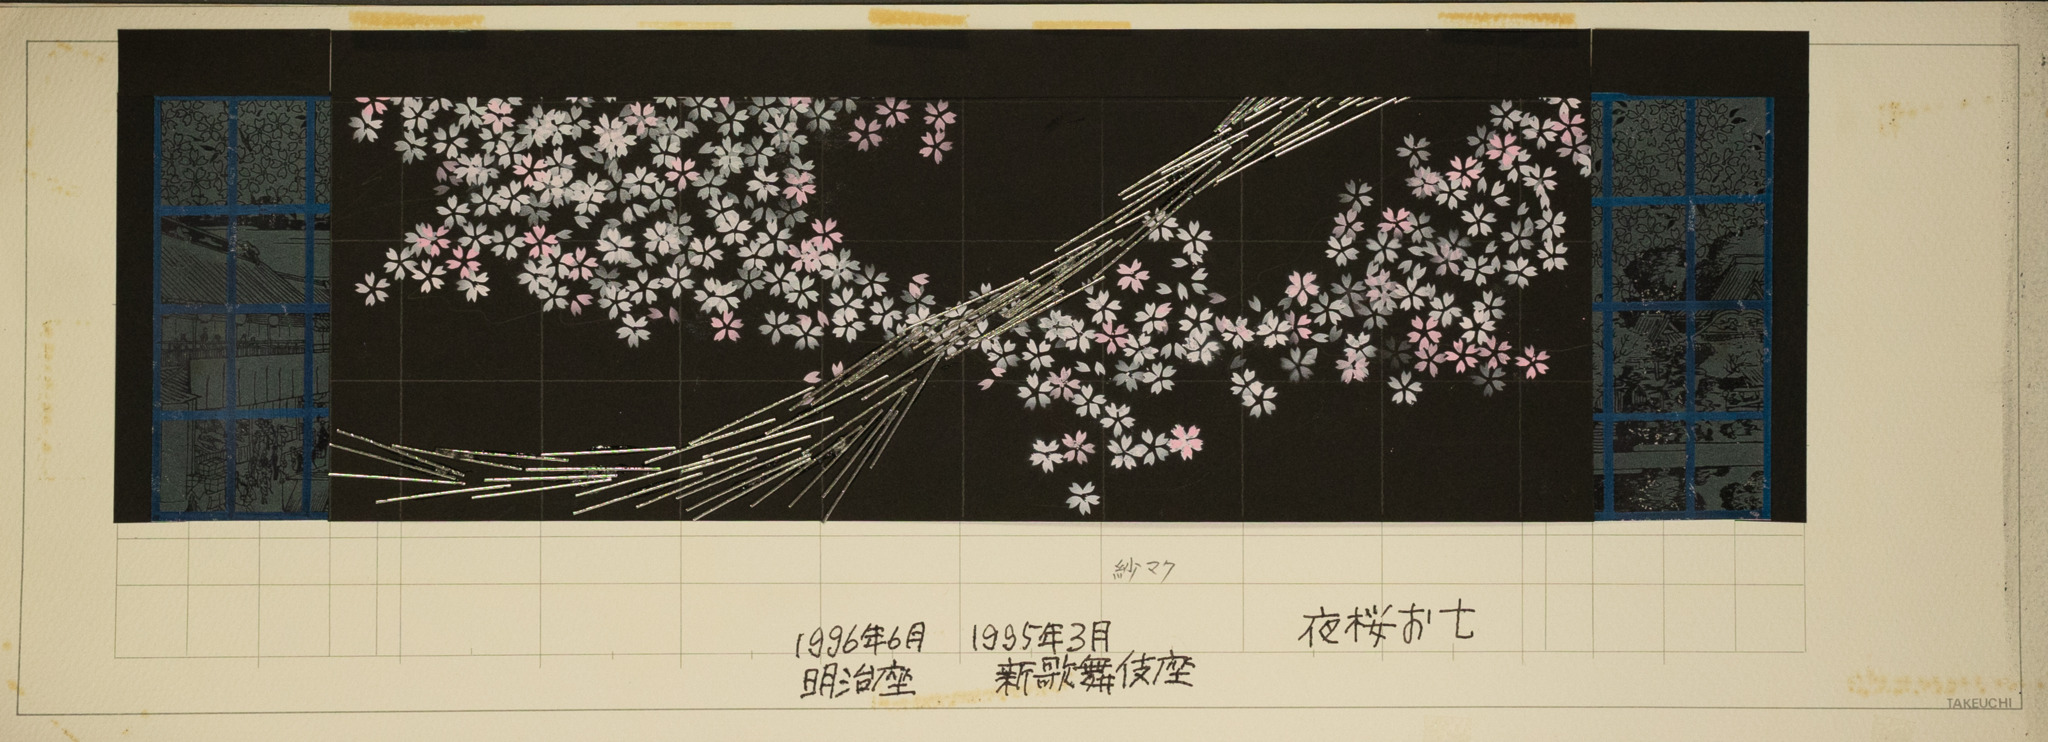 紗マク
夜桜お七
1996年6月 1995年3月
明治座 新歌舞伎座
TAKEUCHI